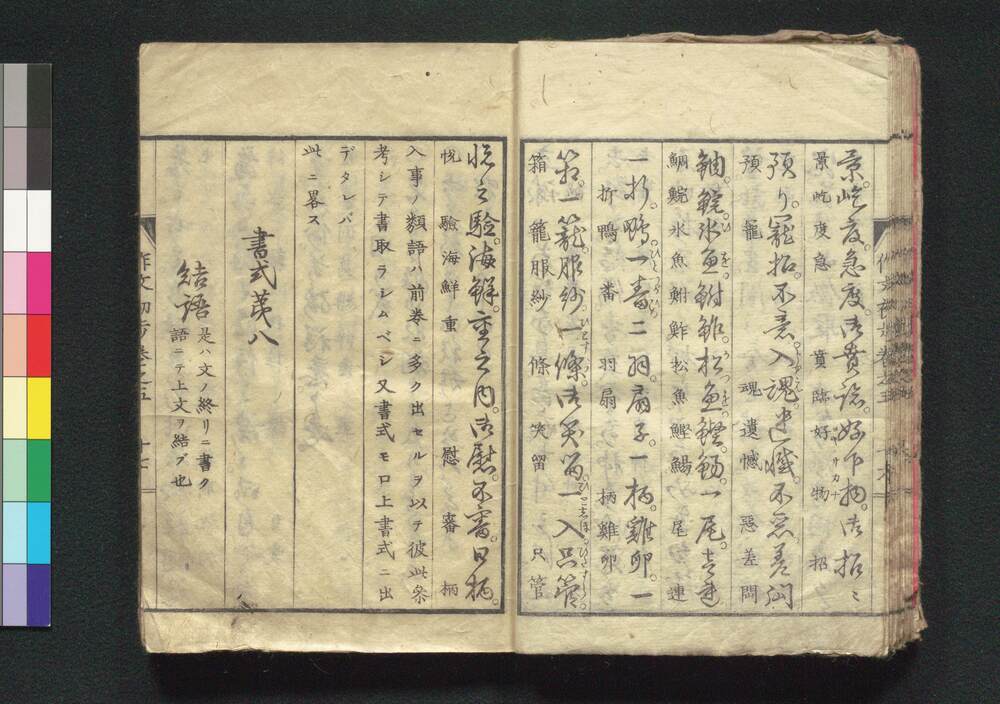 景。屹度。急度。御賁臨。好下物。御招〻
景屹度急　賁臨好　物　招
預り。寵招。不意。入魂。遺憾。不悪。差閊
預　寵　　魂遺憾　悪差閊
鯛。鯇。氷魚。鮒鮓。松魚。鰹。鰑。一尾。一連
鯛鯇氷魚鮒鮓松魚鰹鰑　尾　連
一折。鴨。一番。二羽。扇子。一柄。雞卵。一
折鴨番　羽扇　柄雞卵
箱。一籠。服紗。一條。御笑留。一入。只管。
箱　籠服紗　條　笑留　只管
悦之驗。海鮮。重之内。御慰。不審。日柄。
悦　驗海鮮重　慰　審　柄
入事ノ類語ハ前巻ニ多ク出セルヲ以テ彼此条
考シテ書取ラシムベシ又書式モ口上書式ニ出
デタレバ
此ニ畧ス
書式苐八
結語
是ハ文ノ終リニ書ク
語ニテ上文ヲ結ブ也
作文初歩巻之五　十七